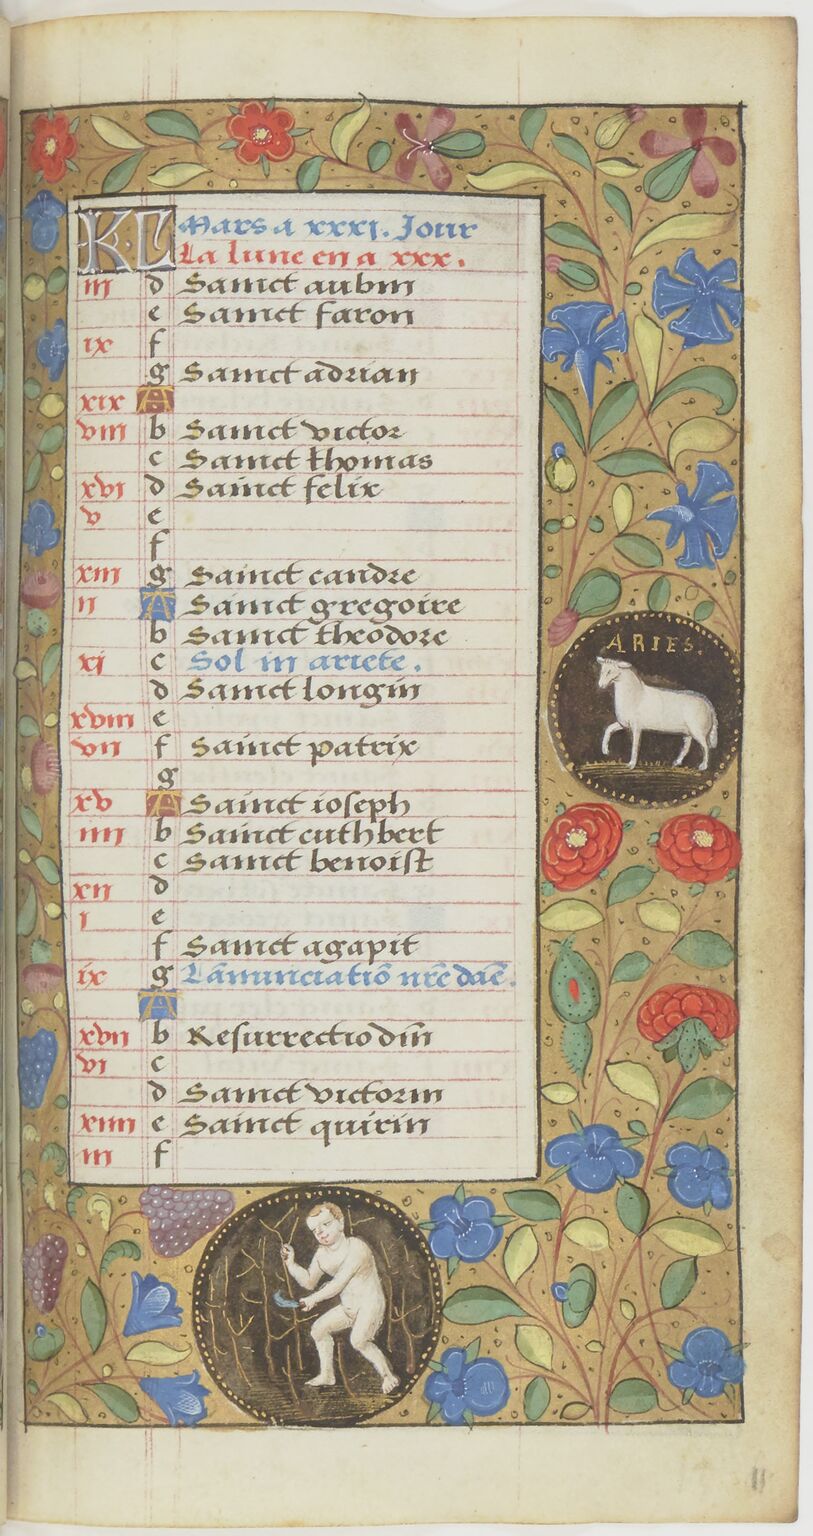 KL Mars a xxxi. Jour
La lune en a xxx.
iii d Sainct aubin
e Sainct faron
ix f
g Sainct adrian
xix A
viii b Sainct victor
c Sainct thomas
xvi d Sainct felix
v e
f
xiii g Sainct candre
ii A Sainct gregoire
b Sainct theodore
xi c Sol in ariete.
d Sainct longin
xviii e
vii f Sainct patrix
g
xv A Sainct ioseph
iiii b Sainct cuthbert
c Sainct benoist
xii d
i e
f Sainct agapit
ix g Lānunciatiō nr̄e daē.
A
xvii b Resurrectio dn̄i
vi c
d Sainct victorin
xiiii e Sainct quirin
iii f
ARIES.
11